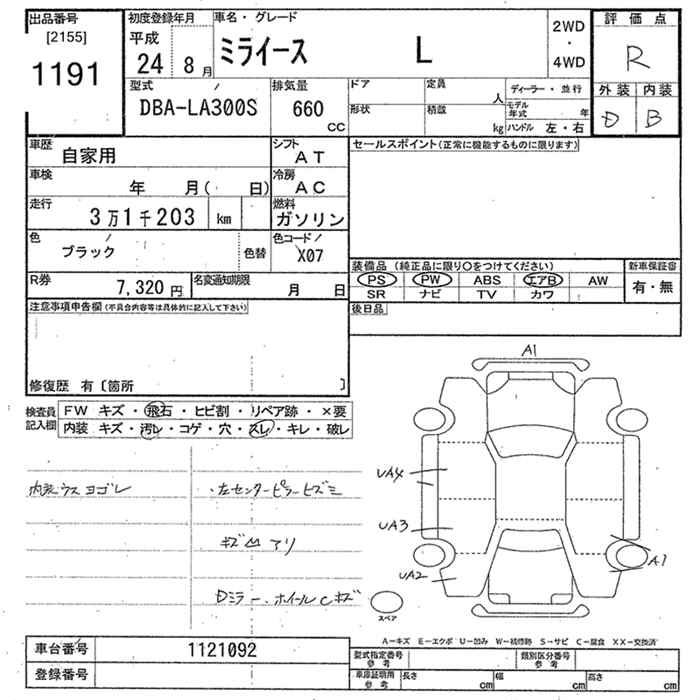 出品番号
[2155]
1191
初度登録年月
平成
24 8月
車名・グレード
ミライース L
2WD
・
4WD
評価点
R
外装 内装
D B
型式
DBA-LA300S
排気量
660
CC
ドア
定員
人
形状
積載
kg
ディーラー・並行
モデル年式 年
ハンドル 左・右
車歴
自家用
シフト
AT
車検
年 月( 日)
冷房
AC
走行
3万1千203 km
燃料
ガソリン
色
ブラック
色替
色コード
X07
R券
7,320円
名変通知期限
月 日
セールスポイント(正常に機能するものに限ります)
装備品 (純正品に限り○をつけてください)
PS PW ABS エアB AW
SR ナビ TV カワ
新車保証書
有・無
後日品
注意事項申告欄(不具合内容等は具体的に記入して下さい)
修復歴 有〔箇所 〕
検査員記入欄
FW キズ・飛石・ヒビ割・リペア跡・×要
内装 キズ・汚レ・コゲ・穴・スレ・キレ・破レ
内装ウスヨゴレ
・左センターピラーヒズミ
キズ凹アリ
Dミラー、ホイールCキズ
A1
UA4
UA3
UA2
A1
スペア
A－キズ E－エクボ U－凹み W－補修跡 S－サビ C－腐食 XX－交換済
車台番号 1121092
登録番号
型式指定番号 参考
類別区分番号 参考
車庫証明用 参考
長さ cm 幅 cm 高さ cm